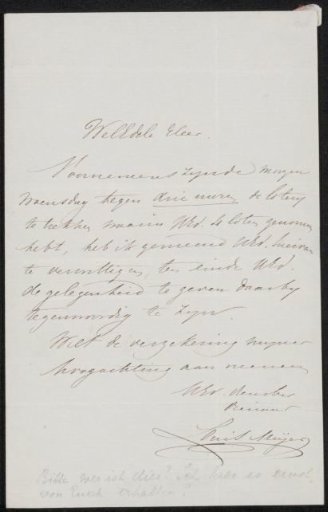 WelEdele Heer.
Voornemens zijnde morgen
Woensdag tegen drie uren de lotery
te trekken waarin UEd. loten genomen
hebt, heb ik gemeend UEd. hiervan
te verwittigen, ten einde UEd.
de gelegenheid te geven daarby
tegenwoordig te zyn.
Met de verzekering mijner
hoogachting aan
UEd. Dienaar
Louis Meijer
Bitte wer ist dies? Ich habe es
von Euch erhalten!